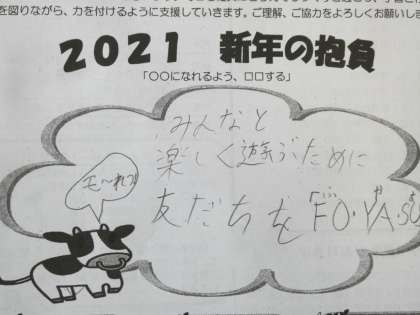 を図りながら、力を付けるように支援していきます。ご理解、ご協力をよろしくお願いしま
2021 新年の抱負
「〇〇になれるよう、ロロする」
みんなと
楽しく遊ぶために
友だちを「FO・YA・SU
モ〜れつ